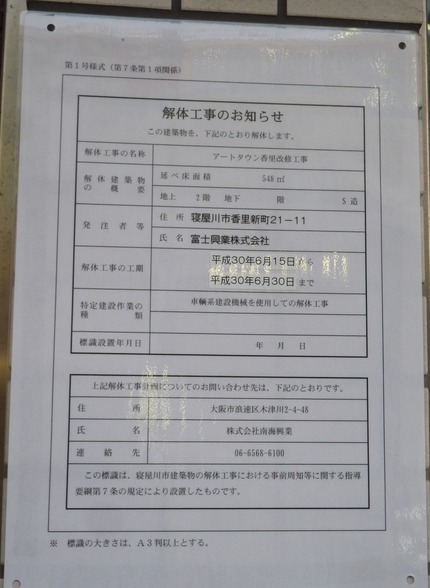 第1号様式(第7条第1項関係)
解体工事のお知らせ
この建築物を、下記のとおり解体します。
解体工事の名称 アートタウン香里改修工事
解体建築物の概要 延べ床面積 548㎡
地上 2階 地下 階 S造
発注者等 住所 寝屋川市香里新町21-11
氏名 富士興業株式会社
解体工事の工期 平成30年6月15日から
平成30年6月30日まで
特定建設作業の種類 車輌系建設機械を使用しての解体工事
標識設置年月日 年 月 日
上記解体工事計画についてのお問い合わせ先は、下記のとおりです。
住所 大阪市浪速区木津川2-4-48
氏名 株式会社南海興業
連絡先 06-6568-6100
この標識は、寝屋川市建築物の解体工事における事前周知等に関する指導
要綱第7条の規定により設置したものです。
※ 標識の大きさは、A3判以上とする。